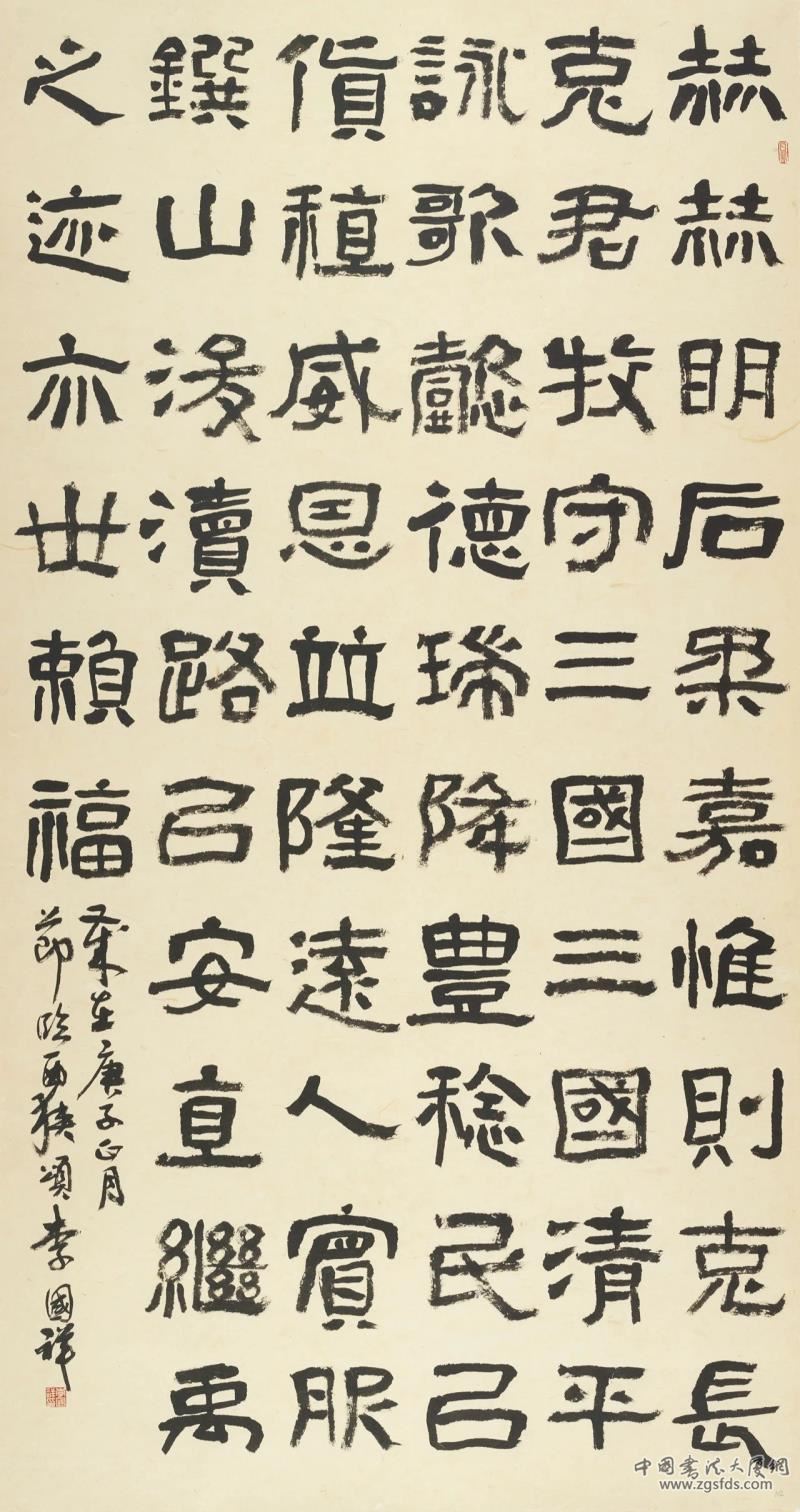 赫赫眀后柔嘉惟則克長
克君牧守三國三國清平
詠歌懿德瑞降豊稔民㠯
貨稙威恩竝隆遠人賓服
鐉山浚瀆路㠯安直繼禹
之迹亦世賴福
歲在庚子正月
節臨西狹頌李國祥
中国书法大厦网
www.zgsfds.com